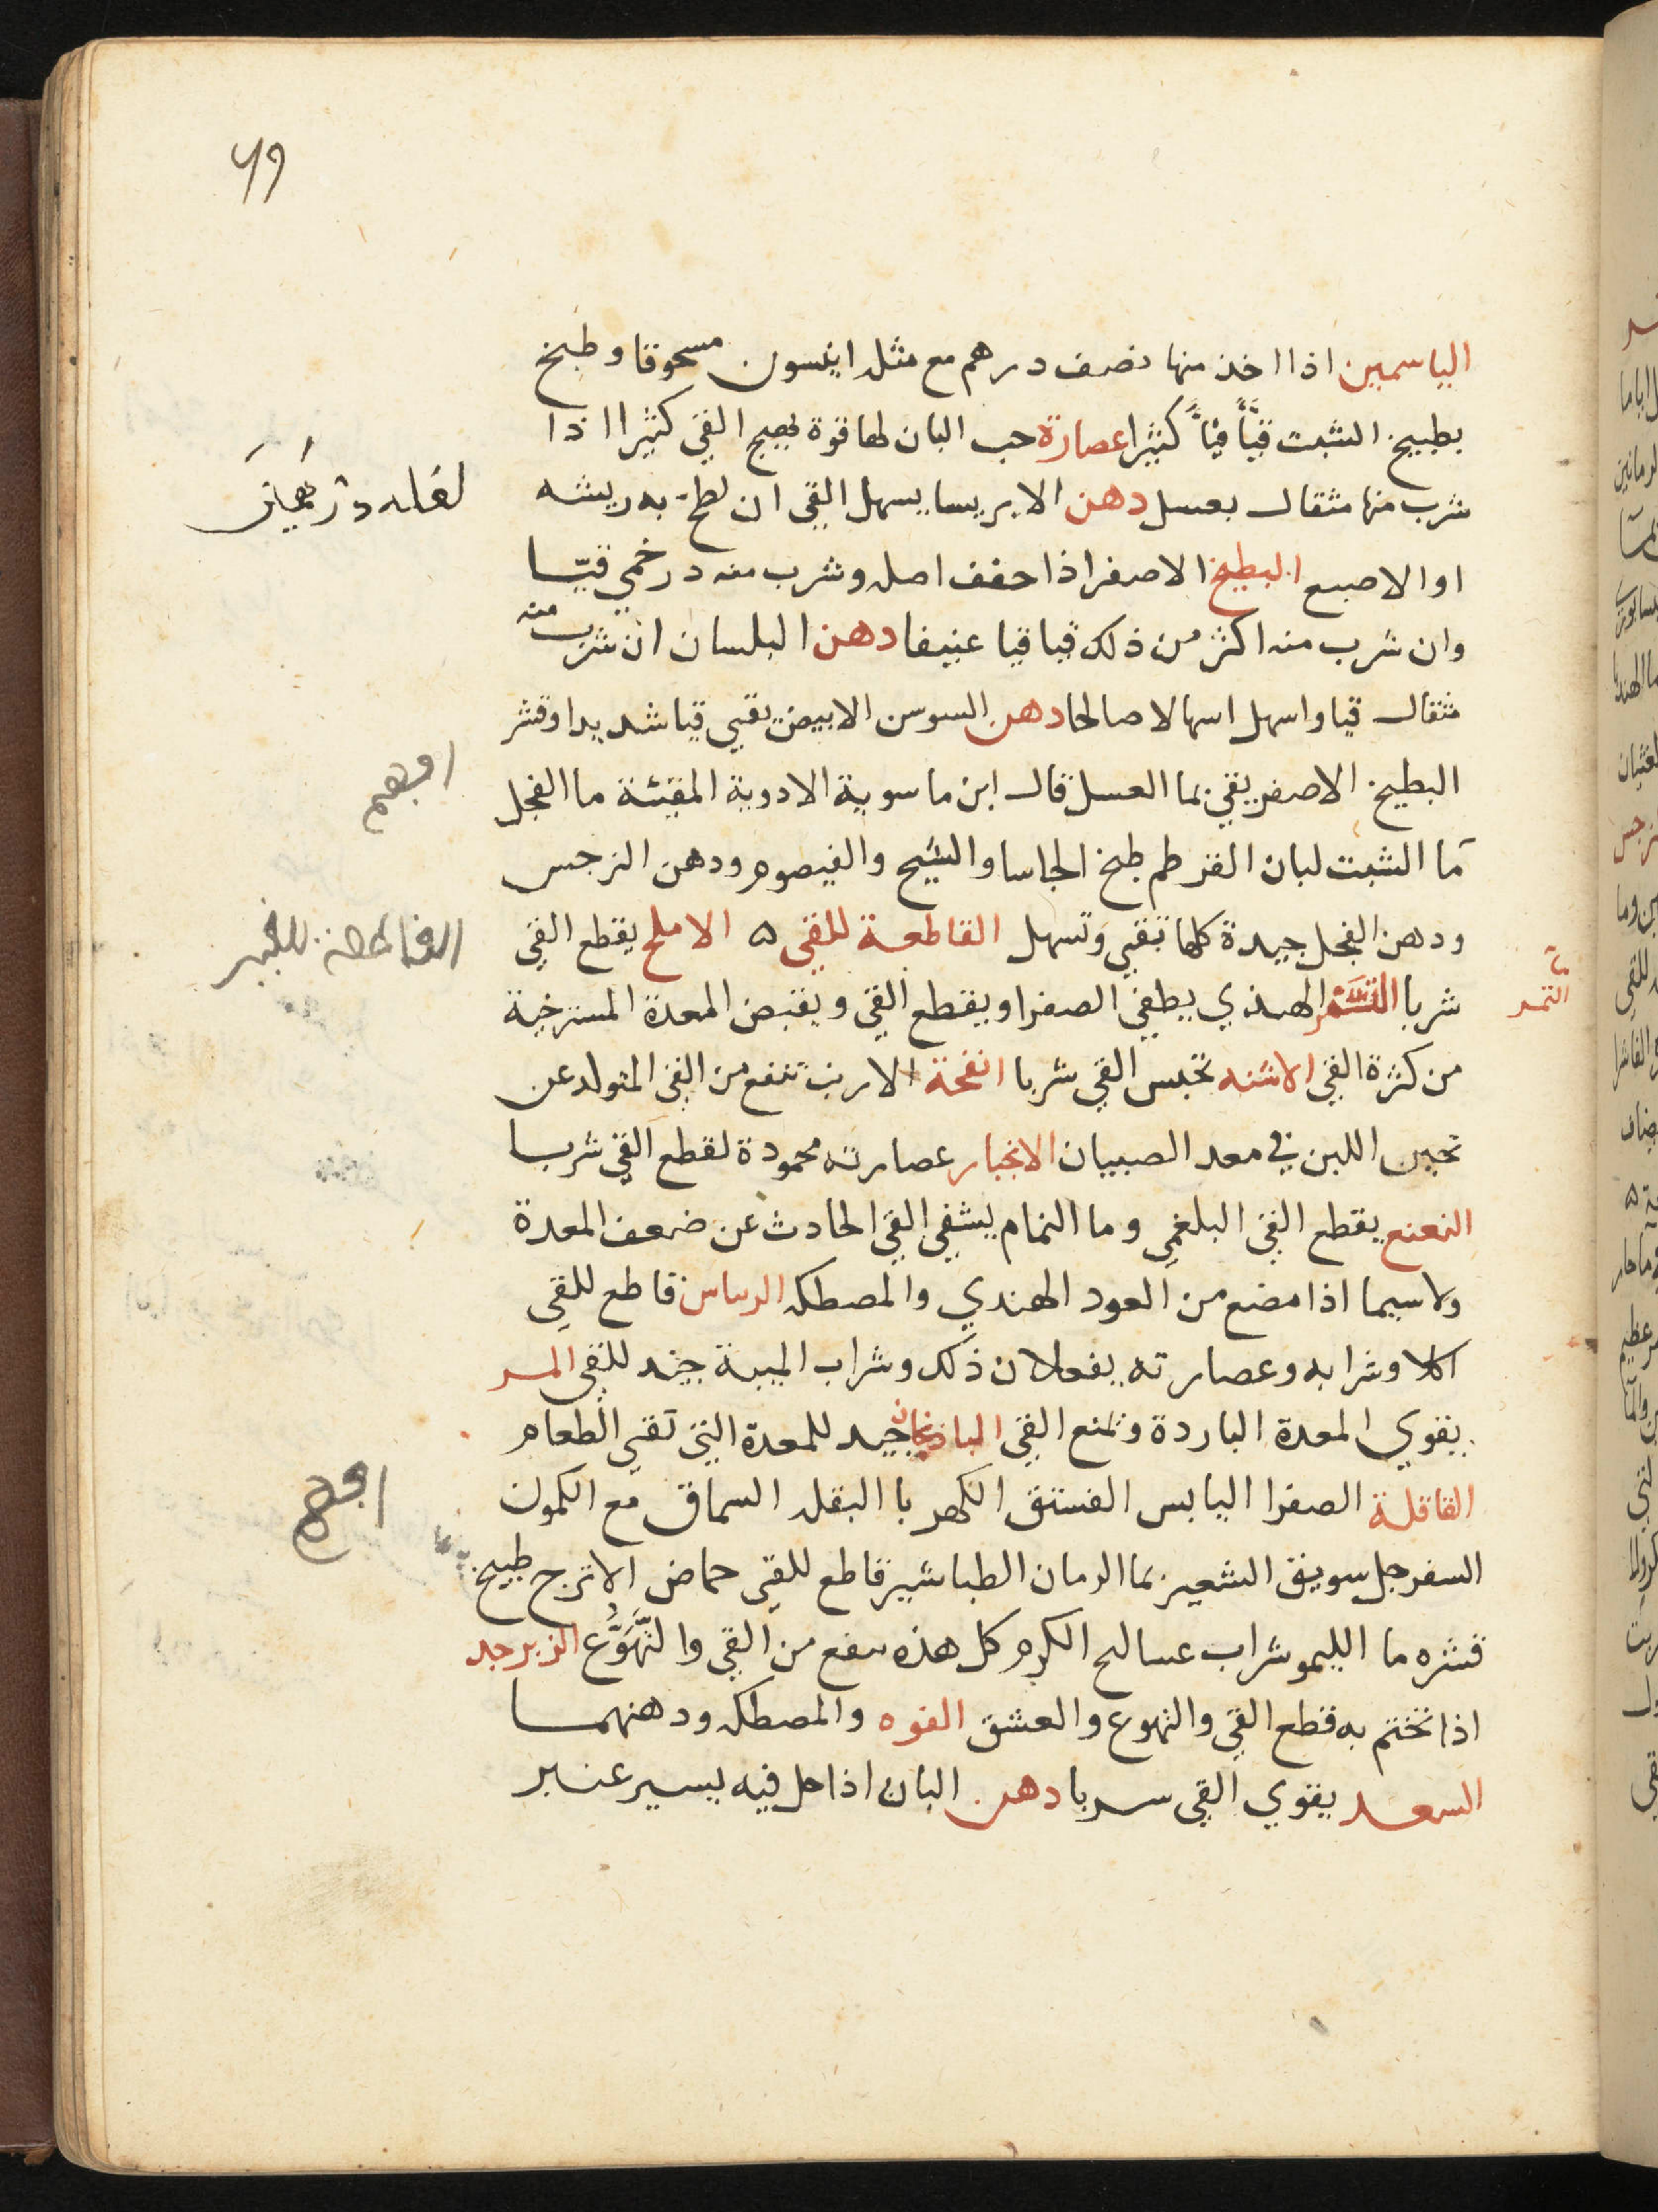 ٦٩
الياسمين اذا اخذ منها نصف درهم مع مثله انيسون مسحوقا وطبخ
بطبيخ الشبت قيّأ قيّأً كثيرا عصارة حب البان لها قوة يهيج القي كثيرا اذا
شرب منها مثقال بعسل دهن الايريسا يسهل القي ان لطخ به ريشه
او الاصبع البطيخ الاصفر اذا جفف اصله وشرب منه درخمي قيّا
وان شرب منه اكثر من ذلك قيا قيا عنيفا دهن البلسان ان شرب منه
مثقال قيا واسهل اسهالا صالحا دهن السوسن الابيض يقيي قيا شديدا وقشر
البطيخ الاصفر يقي بما العسل قال ابن ماسوية الادوية المقيئة ما الفجل
ما الشبت لبان القرطم طبخ الحاسا والشيح والقيصوم ودهن النرجس
ودهن الفجل جيدة كلها تقيي وتسهل القاطعة للقي ه الاملج يقطع القي
شربا التمر الهندي يطفي الصفرا ويقطع القي ويقبض المعدة المسترخية
التمر
من كثرة القي الاشنه تحبس القي شربا انفحة الارنب تنفع من القي المتولد عن
تجبن اللبن في معد الصبيان الانجبار عصارته محمودة لقطع القي شربا
النعنع يقطع القي البلغمي وما النمام يشفي القي الحادث عن ضعف المعدة
ولا سيما اذا مضغ من العود الهندي والمصطكه الريباس قاطع للقي
اكلا وشرابه وعصارته يفعلان ذلك وشراب الميبة جيد للقي المر
يقوي المعدة الباردة ويمنع القي الباذنجان جيد للمعدة التي تقي الطعام
القاقلة الصفرا اليابس الفستق الكهربا البقله السماق مع الكمون
السفرجل سويق الشعير بما الرمان الطباشير قاطع للقي حماض الاترج طبيخ
قشره ما الليمو شراب عسالج الكرم كل هذه ينفع من القي والتَّهَوُّع الزبرجد
اذا تختم به قطع القي والتهوع والعشق الفوه والمصطكه ودهنهما
السعد يقوي القي شربا دهن البان اذا حل فيه يسير عنبر